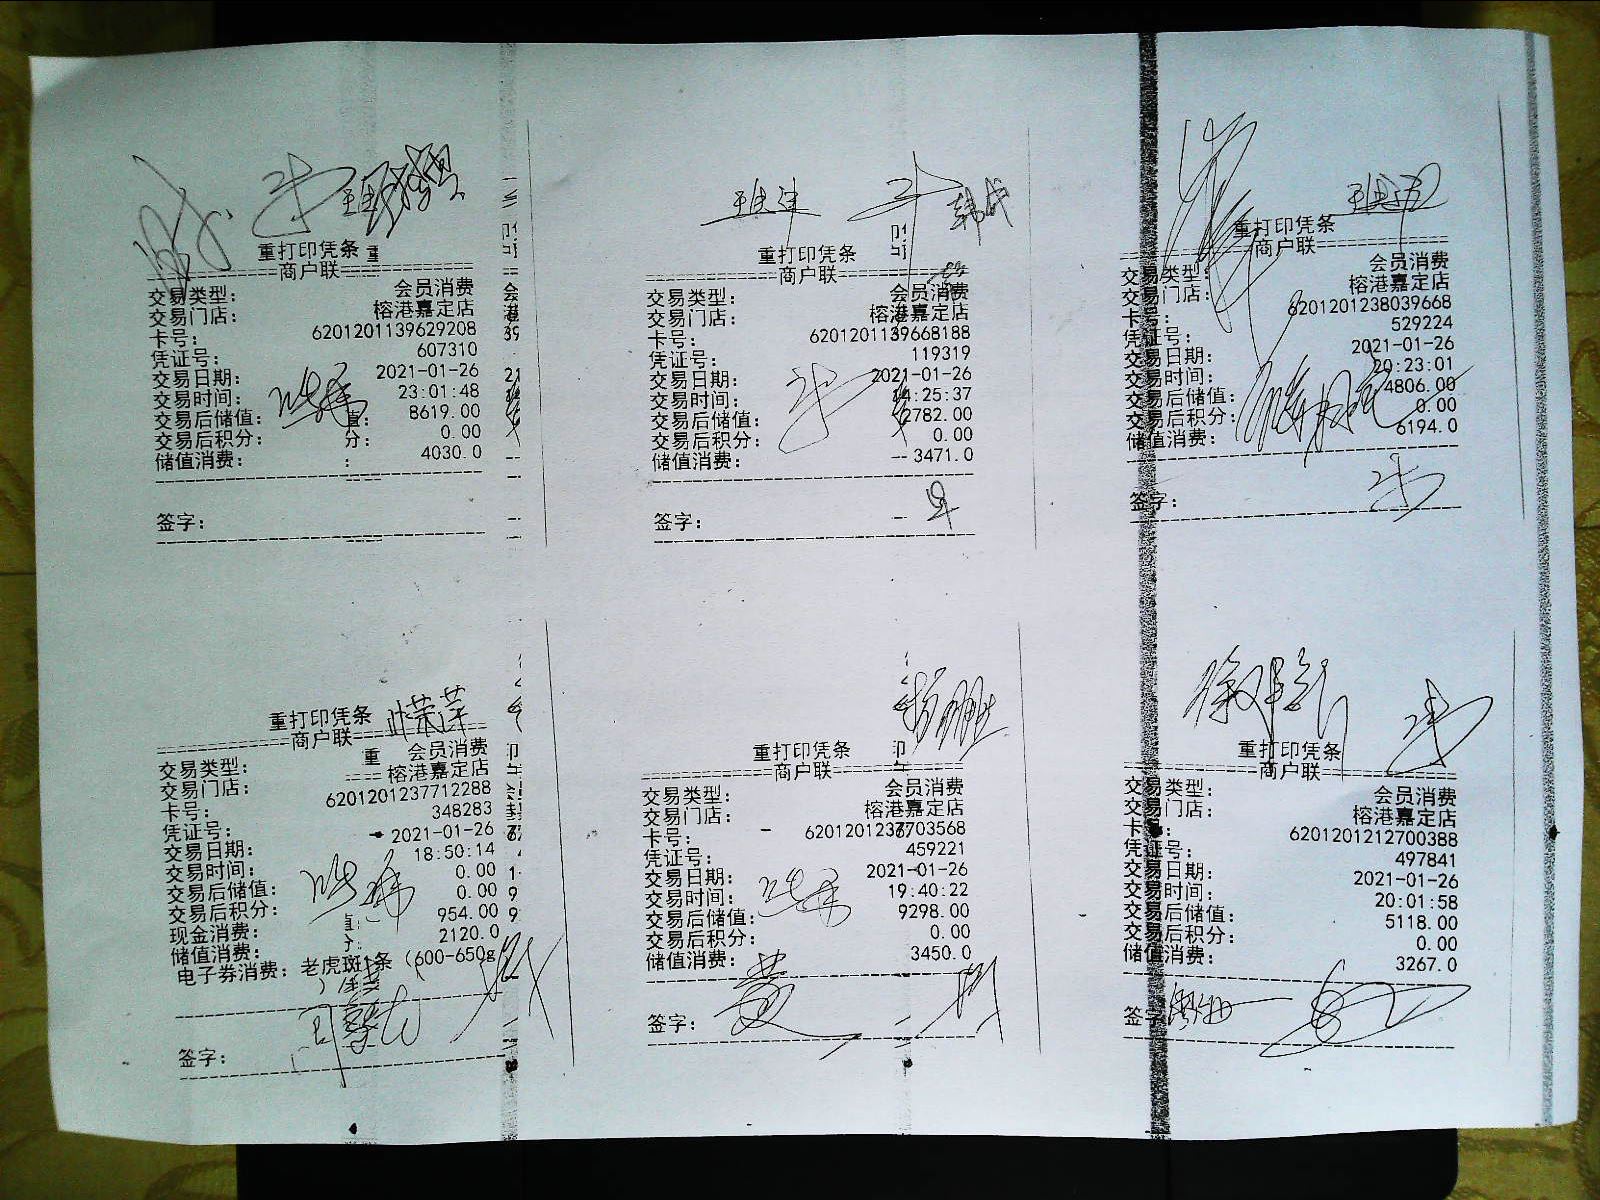 重打印凭条
商户联
交易类型： 会员消费
交易门店： 榕港嘉定店
卡号： 6201201139629208
凭证号： 607310
交易日期： 2021-01-26
交易时间： 23:01:48
交易后储值： 8619.00
交易后积分： 0.00
储值消费： 4030.0
签字：
重打印凭条
商户联
交易类型： 会员消费
交易门店： 榕港嘉定店
卡号： 6201201139668188
凭证号： 119319
交易日期： 2021-01-26
交易时间： 14:25:37
交易后储值： 2782.00
交易后积分： 0.00
储值消费： 3471.0
签字：
重打印凭条
商户联
交易类型： 会员消费
交易门店： 榕港嘉定店
卡号： 6201201238039668
凭证号： 529224
交易日期： 2021-01-26
交易时间： 20:23:01
交易后储值： 4806.00
交易后积分： 0.00
储值消费： 6194.0
签字：
重打印凭条
商户联
交易类型： 会员消费
交易门店： 榕港嘉定店
卡号： 6201201237712288
凭证号： 348283
交易日期： 2021-01-26
交易时间： 18:50:14
交易后储值： 0.00
交易后积分： 0.00
现金消费： 954.00
储值消费： 2120.0
电子券消费： 老虎斑1条（600-650g
）
签字：
重打印凭条
商户联
交易类型： 会员消费
交易门店： 榕港嘉定店
卡号： 6201201237703568
凭证号： 459221
交易日期： 2021-01-26
交易时间： 19:40:22
交易后储值： 9298.00
交易后积分： 0.00
储值消费： 3450.0
签字：
重打印凭条
商户联
交易类型： 会员消费
交易门店： 榕港嘉定店
卡号： 6201201212700388
凭证号： 497841
交易日期： 2021-01-26
交易时间： 20:01:58
交易后储值： 5118.00
交易后积分： 0.00
储值消费： 3267.0
签